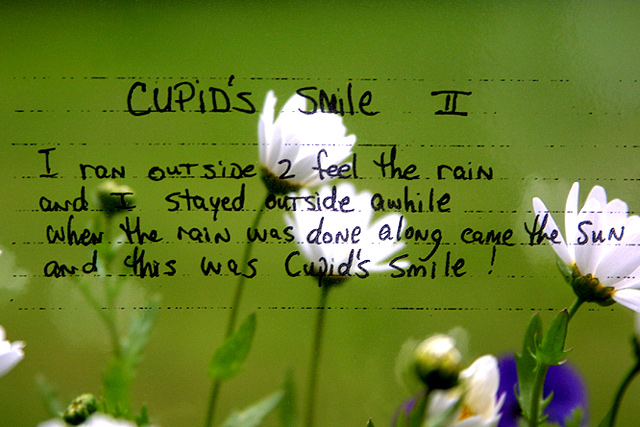 CUPID'S SMILE II
I ran outside 2 feel the rain
and I stayed outside awhile
when the rain was done along came the SUN
and this was Cupid's Smile !